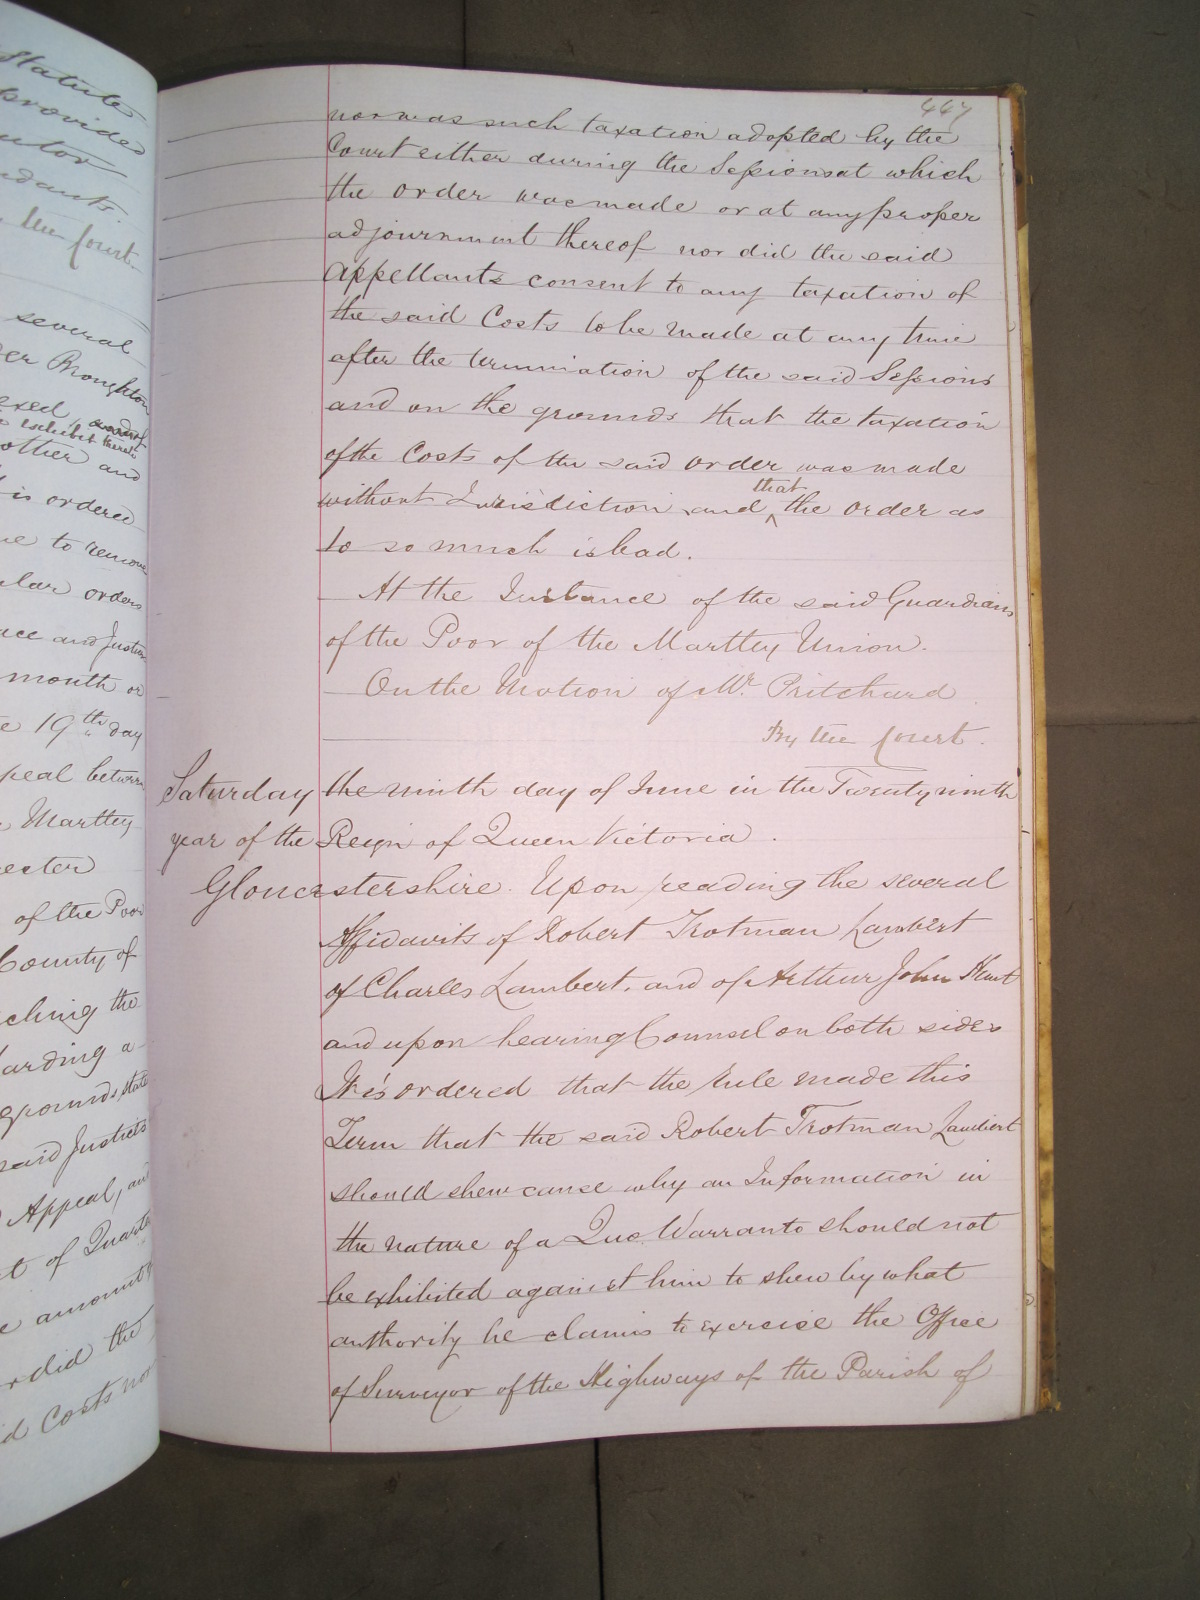 Statute
provided
the Court
several
Broughton
exhibit thereto
other and
is ordered
to remove
orders
and Justices
month or
19th day
between
Martley
of the Poor
County of
the
a
grounds, stated
said Justices
Appeal, and
of Quarter
amount
did the
Costs nor
447
nor was such taxation adopted by the
Court either during the Sessions at which
the order was made or at any proper
adjournment thereof nor did the said
Appellants consent to any taxation of
the said Costs to be made at any time
after the termination of the said Sessions
and on the grounds that the taxation
of the Costs of the said order was made
without Jurisdiction and that the order as
to so much is bad.
At the Instance of the said Guardians
of the Poor of the Martley Union.
On the Motion of Mr. Pritchard
By the Court.
Saturday the ninth day of June in the Twenty ninth
year of the Reign of Queen Victoria.
Gloucestershire. Upon reading the several
Affidavits of Robert Trotman Lambert
of Charles Lambert, and of Arthur John Hunt
and upon hearing Counsel on both sides
It is ordered that the rule made this
Term that the said Robert Trotman Lambert
should shew cause why an Information in
the nature of a Quo Warranto should not
be exhibited against him to shew by what
authority he claims to exercise the Office
of Surveyor of the Highways of the Parish of